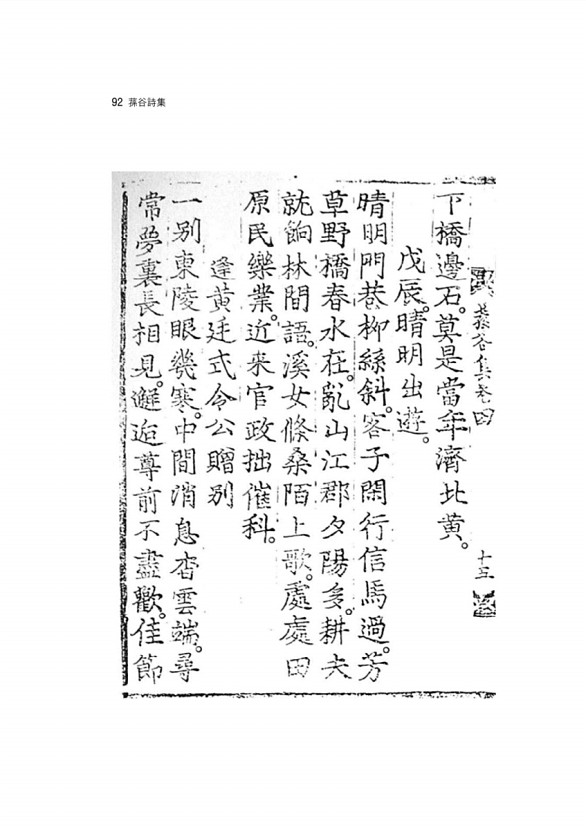 92 蓀谷詩集
蓀谷集卷四
十五
下橋邊石。莫是當年濟北黃。
戊辰。晴明出遊。
晴明門巷柳絲斜。客子閑行信馬過。芳
草野橋春水在。亂山江郡夕陽多。耕夫
就餉林間語。溪女條桑陌上歌。處處田
原民樂業。近來官政拙催科。
逢黃廷式令公贈別
一別東陵眼幾寒。中間消息杳雲端。尋
常夢裏長相見。邂逅尊前不盡歡。佳節